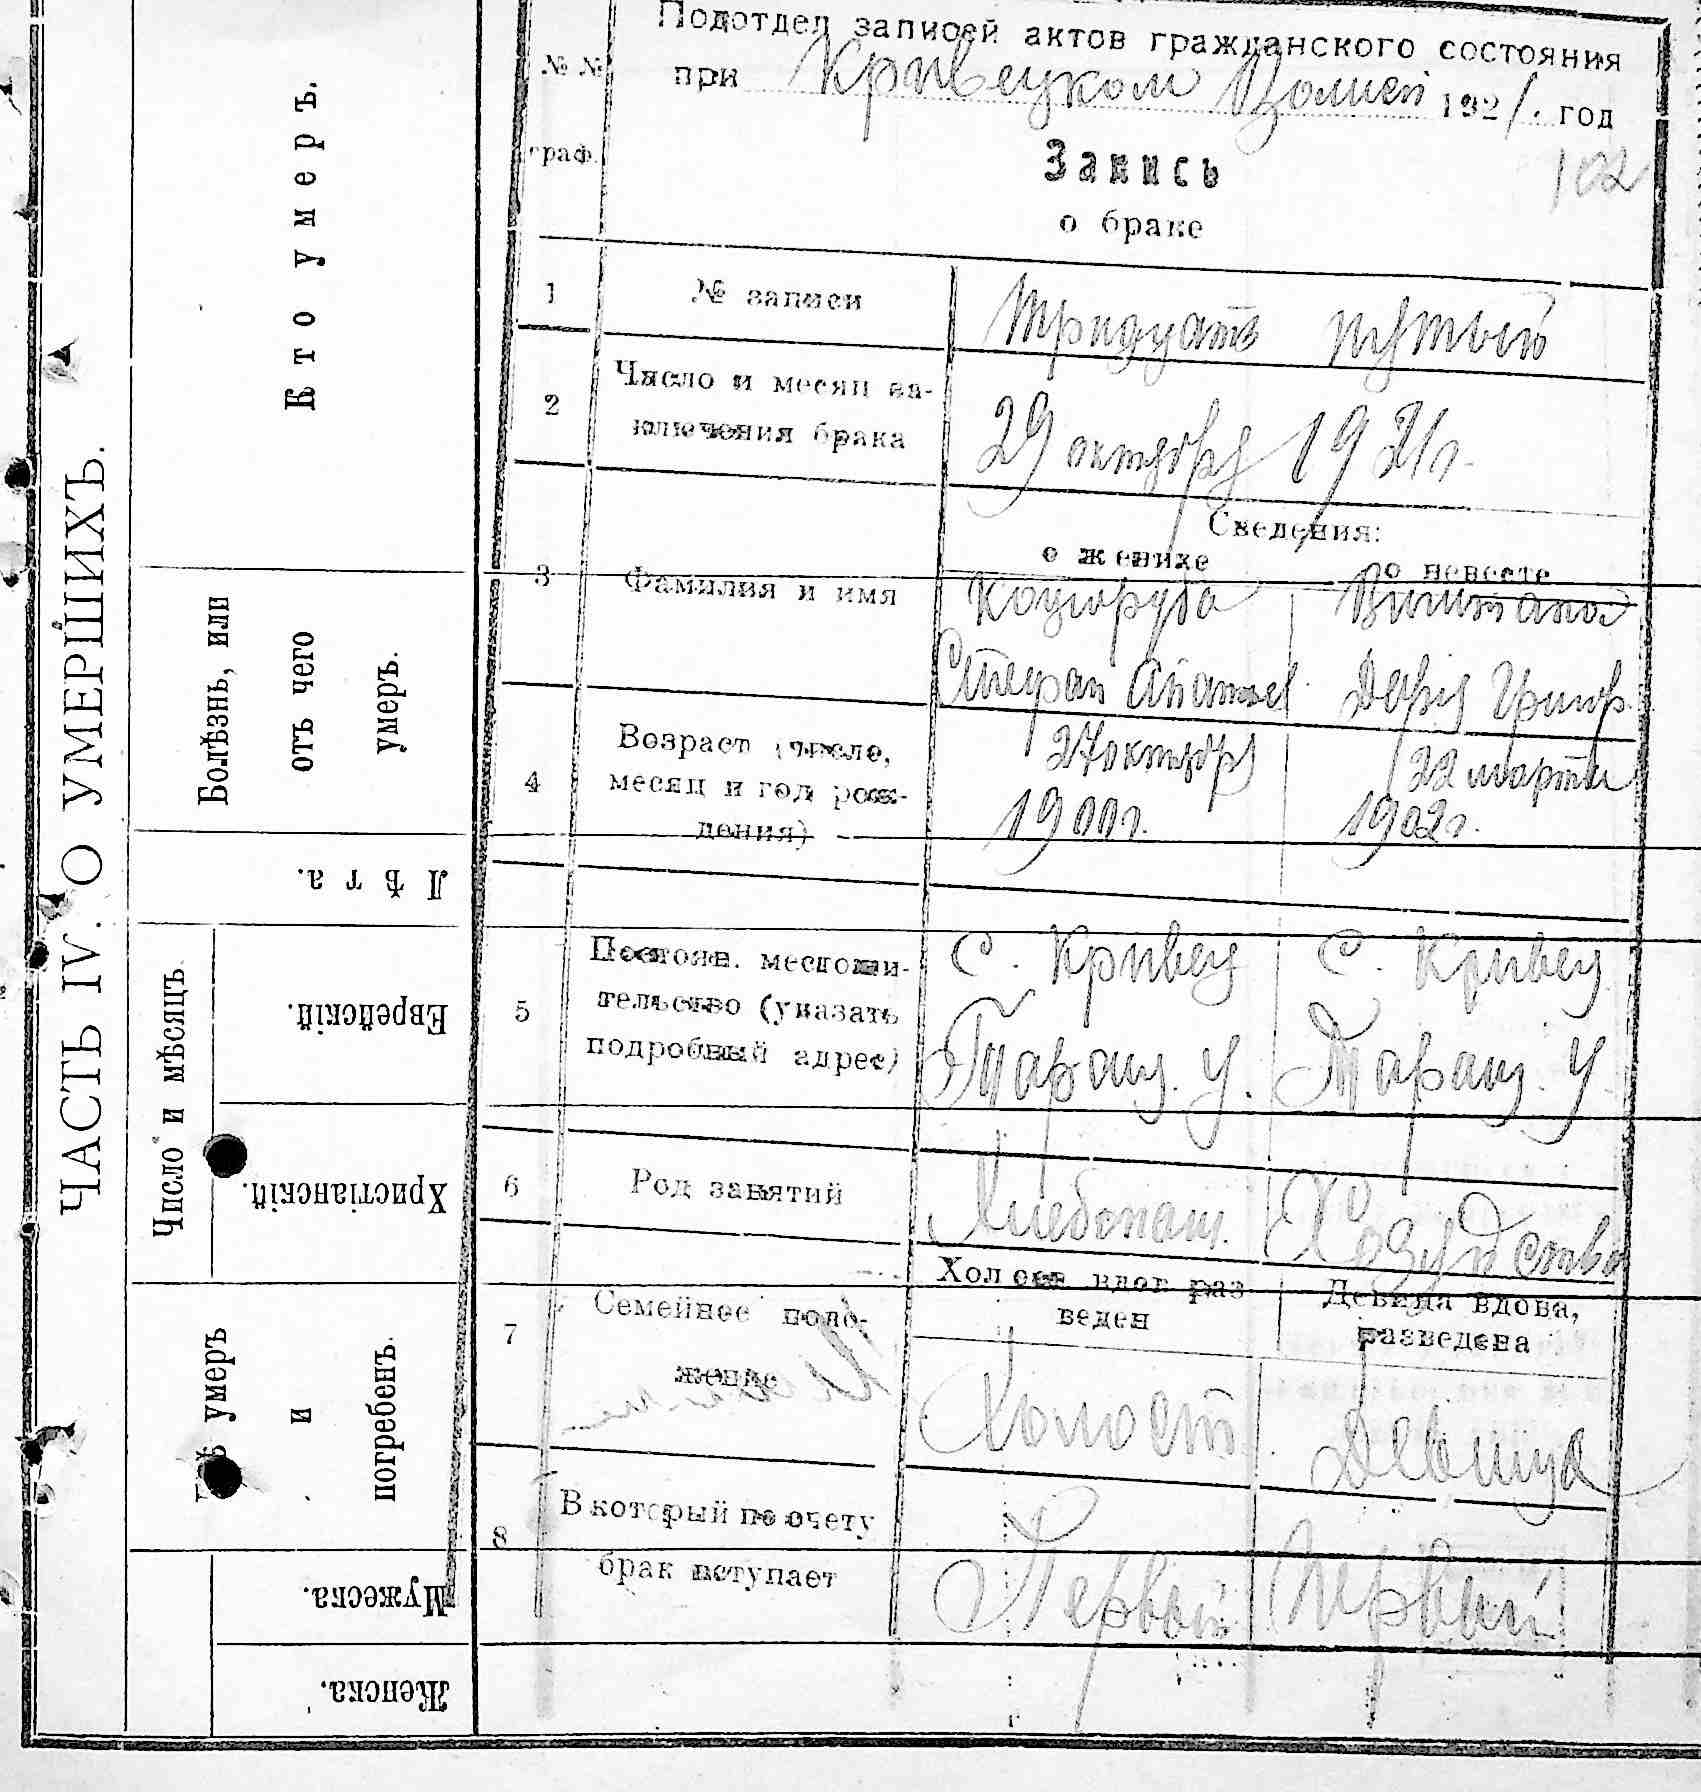 Подотдел записей актов гражданского состояния
при Кривецком Волис 1921. год
102
№№
граф.
Запись
о браке
1 № записи Тридцать пятый
2 Число и месяц за-
ключения брака 29 октября 1921 г.
Сведения:
о женихе о невесте
3 Фамилия и имя Коцюруба
Стефан Дария Григор.
4 Возраст (число,
месяц и год рож-
дения)
27 октября 22 марта
1900 г. 1902 г.
5 Постоян. местожи-
тельство (указать
подробный адрес)
с. Кривец с. Кривец
Таращ. у. Таращ. у
6 Род занятий Хлебопаш. Хозяйство
7 Семейное поло-
жение
Холост вдов раз
веден
Девица вдова,
разведена
Холост Девица
8 В который по счету
брак вступает
Первый Первый
ЧАСТЬ IV. О УМЕРШИХЪ.
Кто умеръ.
Болѣзнь, или
отъ чего
умеръ.
Лѣта.
Число и мѣсяцъ
Еврейскій.
Христіанскій.
умеръ
и
погребенъ.
Мужеска.
Женска.